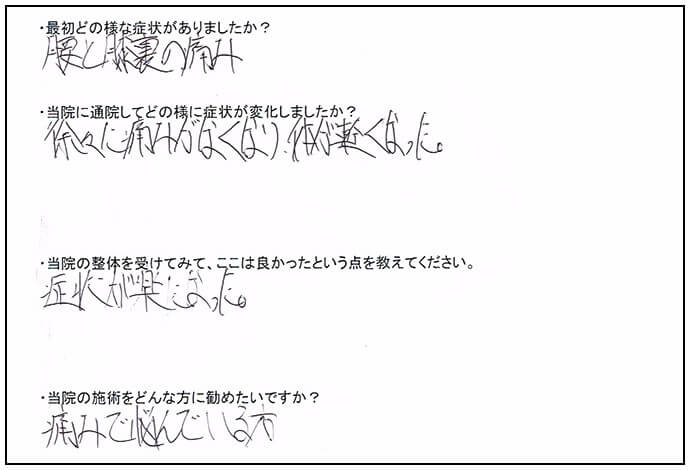 ・最初どの様な症状がありましたか？
腰と膝裏の痛み
・当院に通院してどの様に症状が変化しましたか？
徐々に痛みがなくなり、体が軽くなった。
・当院の整体を受けてみて、ここは良かったという点を教えてください。
症状が楽になった。
・当院の施術をどんな方に勧めたいですか？
痛みで悩んでいる方